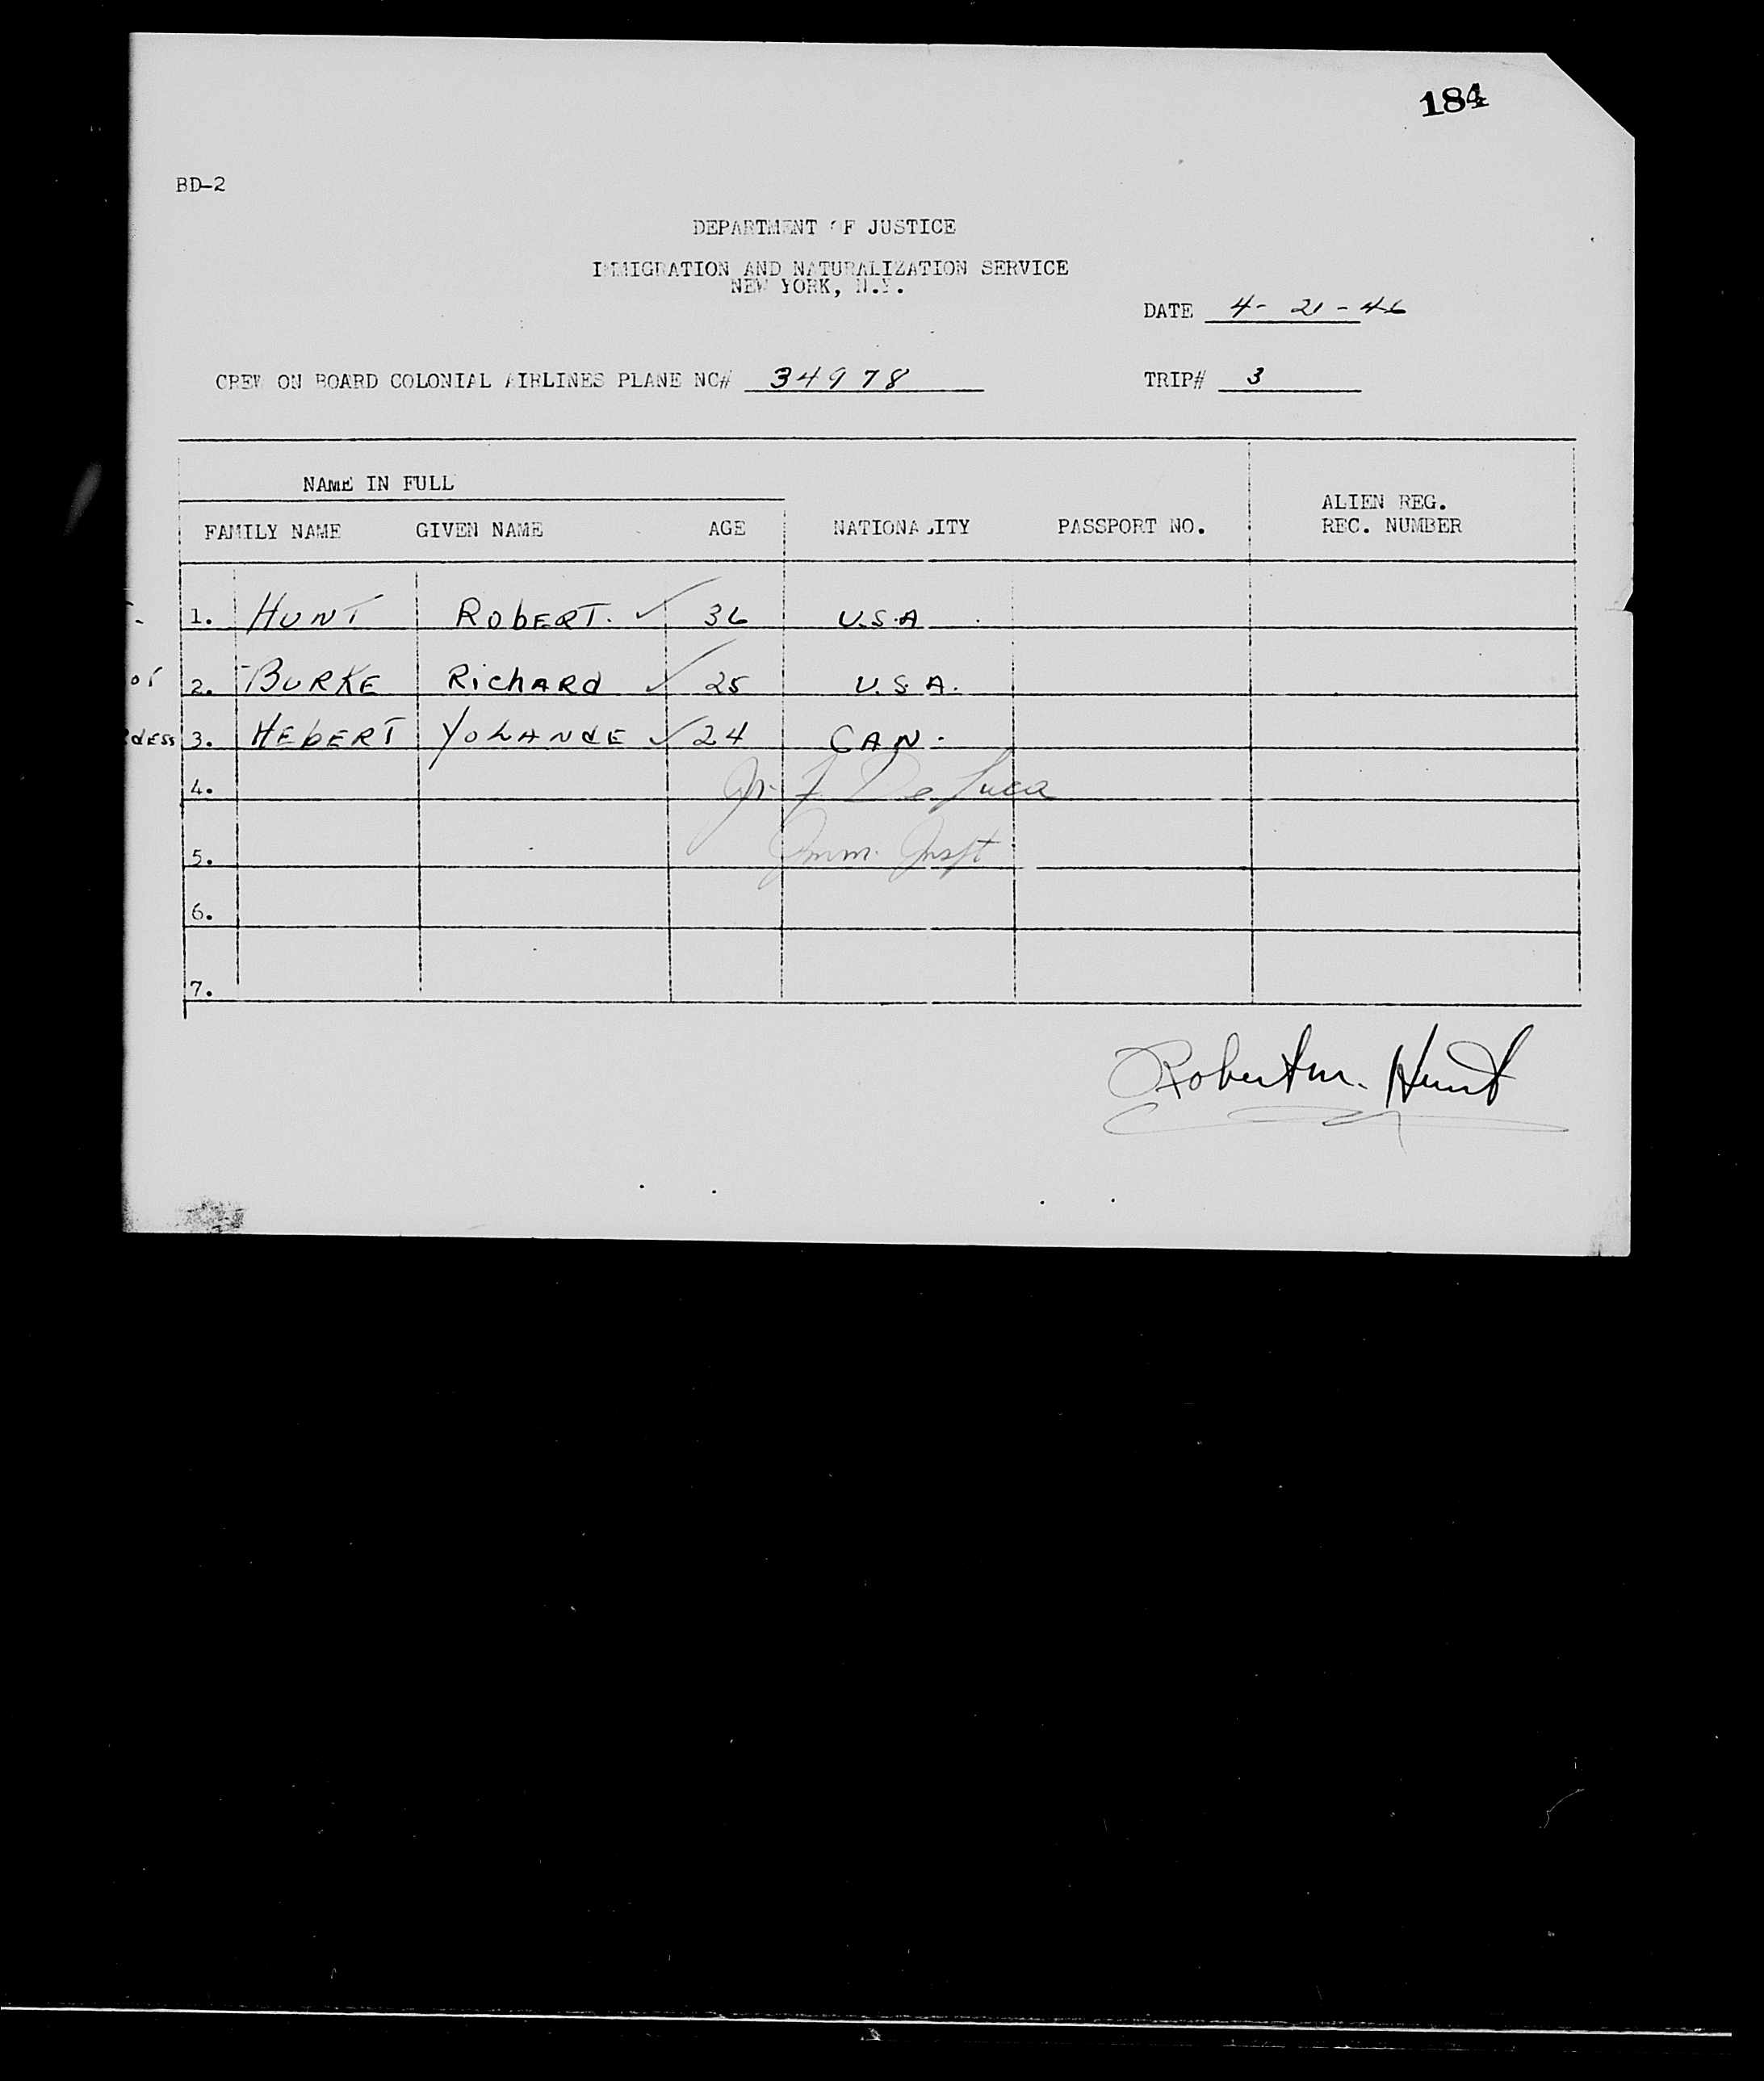 184
BD-2
DEPARTMENT OF JUSTICE
IMMIGRATION AND NATURALIZATION SERVICE
NEW YORK, N.Y.
DATE 4-21-46
CREW ON BOARD COLONIAL AIRLINES PLANE NC# 34978 TRIP# 3
NAME IN FULL
ALIEN REG.
FAMILY NAME GIVEN NAME AGE NATIONALITY PASSPORT NO. REC. NUMBER
1. HUNT ROBERT. ✓ 36 U.S.A
2. BURKE RichARd ✓ 25 U.S.A.
dESS 3. HEbERT YOLANdE ✓ 24 CAN.
4. De Luca
5. Imm. Inspt
6.
7.
Robert M. Hunt